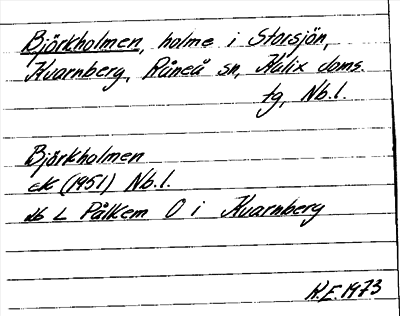 Björkholmen, holme i Storsjön,
Kvarnberg, Råneå sn, Kalix doms.
tg, Nb.l.
Björkholmen
ek (1951) Nb.l.
db L Pålkem O i Kvarnberg
K.E. 1973